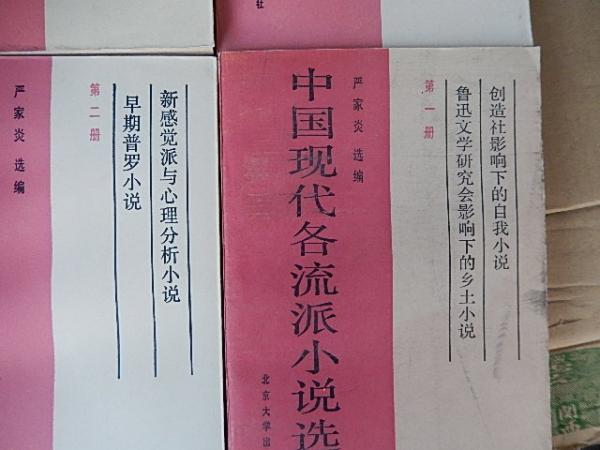 社
严家炎 选编
第二册
新感觉派与心理分析小说
早期普罗小说
中国现代各流派小说选
严家炎 选编
第一册
创造社影响下的自我小说
鲁迅文学研究会影响下的乡土小说
北京大学出